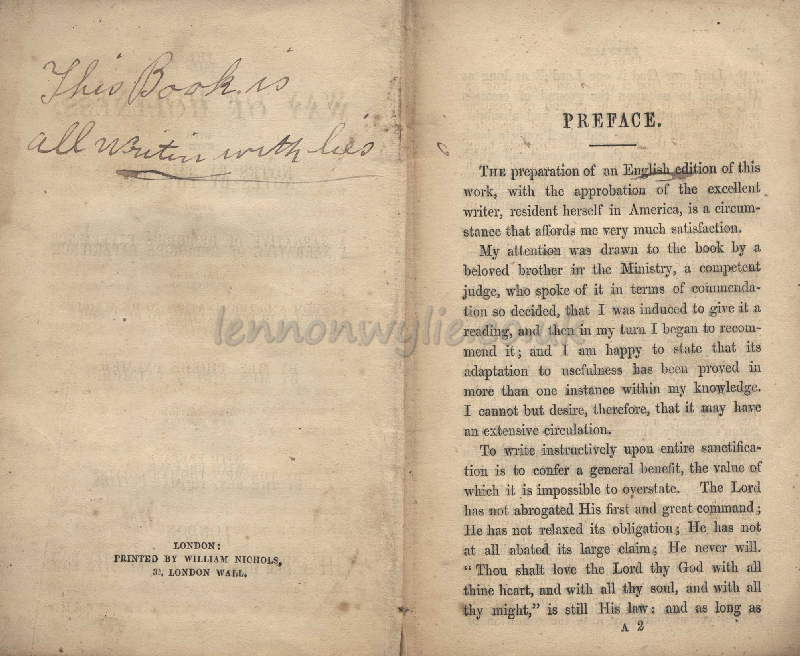 This Book is
all writin with lies
LONDON:
PRINTED BY WILLIAM NICHOLS,
32, LONDON WALL.
PREFACE.
THE preparation of an English edition of this
work, with the approbation of the excellent
writer, resident herself in America, is a circum-
stance that affords me very much satisfaction.
My attention was drawn to the book by a
beloved brother in the Ministry, a competent
judge, who spoke of it in terms of commenda-
tion so decided, that I was induced to give it a
reading, and then in my turn I began to recom-
mend it; and I am happy to state that its
adaptation to usefulness has been proved in
more than one instance within my knowledge.
I cannot but desire, therefore, that it may have
an extensive circulation.
To write instructively upon entire sanctifica-
tion is to confer a general benefit, the value of
which it is impossible to overstate. The Lord
has not abrogated His first and great command;
He has not relaxed its obligation; He has not
at all abated its large claim; He never will.
"Thou shalt love the Lord thy God with all
thine heart, and with all thy soul, and with all
thy might," is still His law: and as long as
A 2
lennonwylie.co.uk